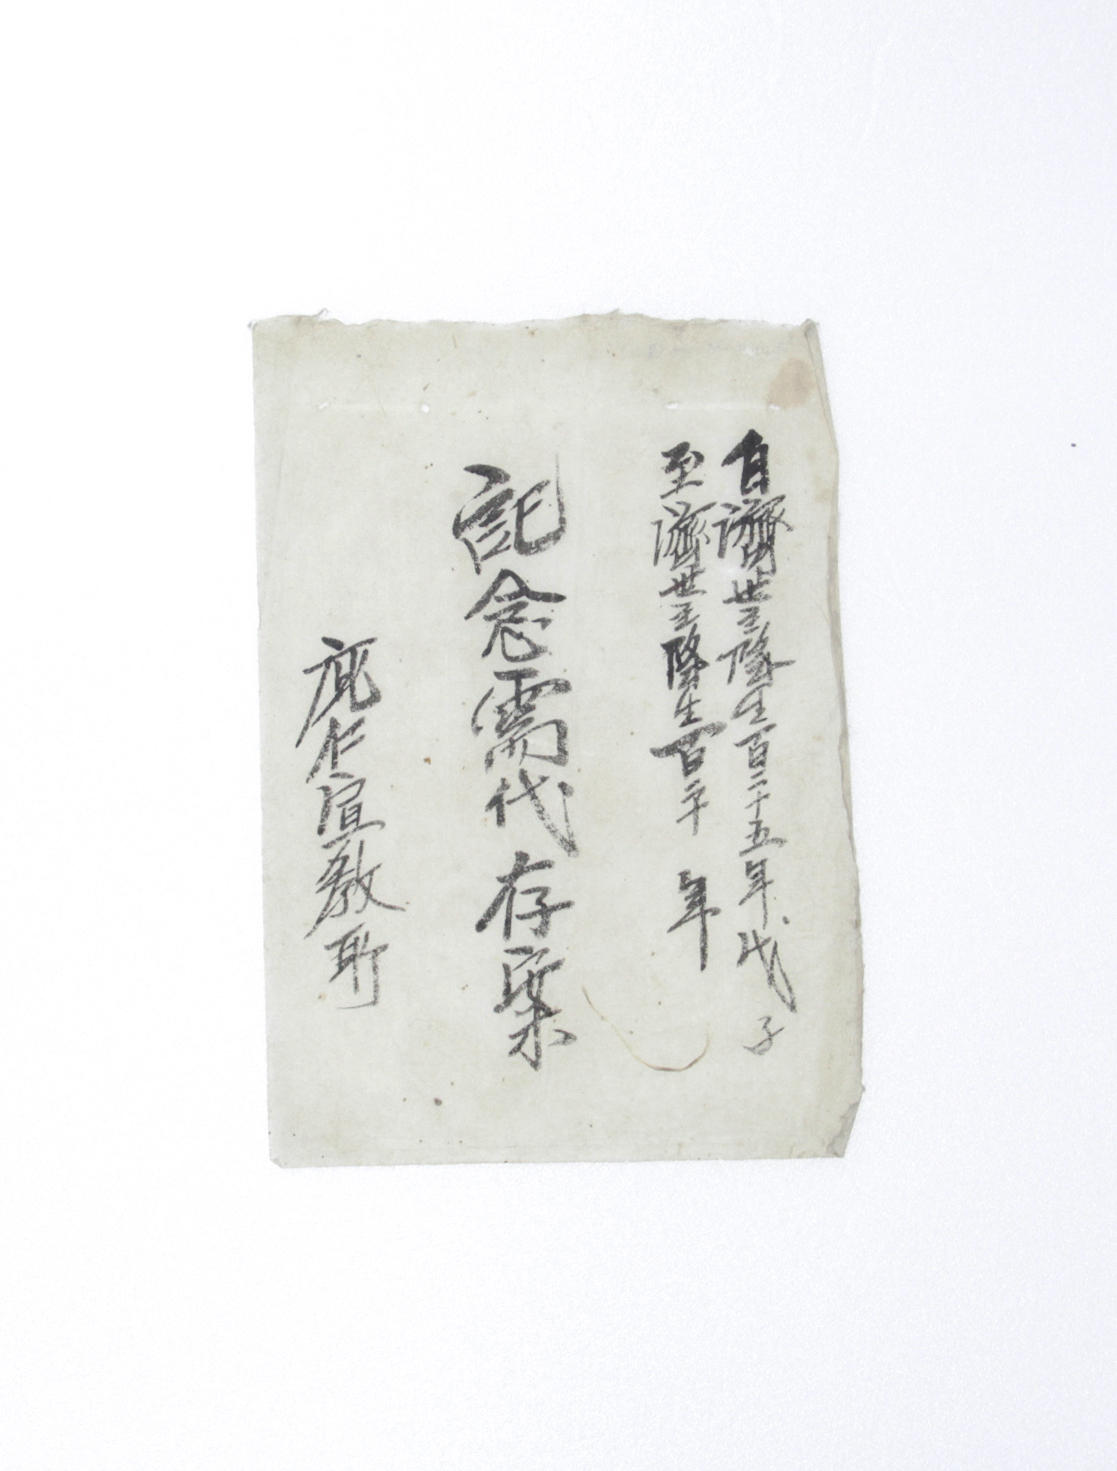 自濟世主降生百二十五年戊子
至濟世主降生百二十年
記念需代存案
龍仁宣教所